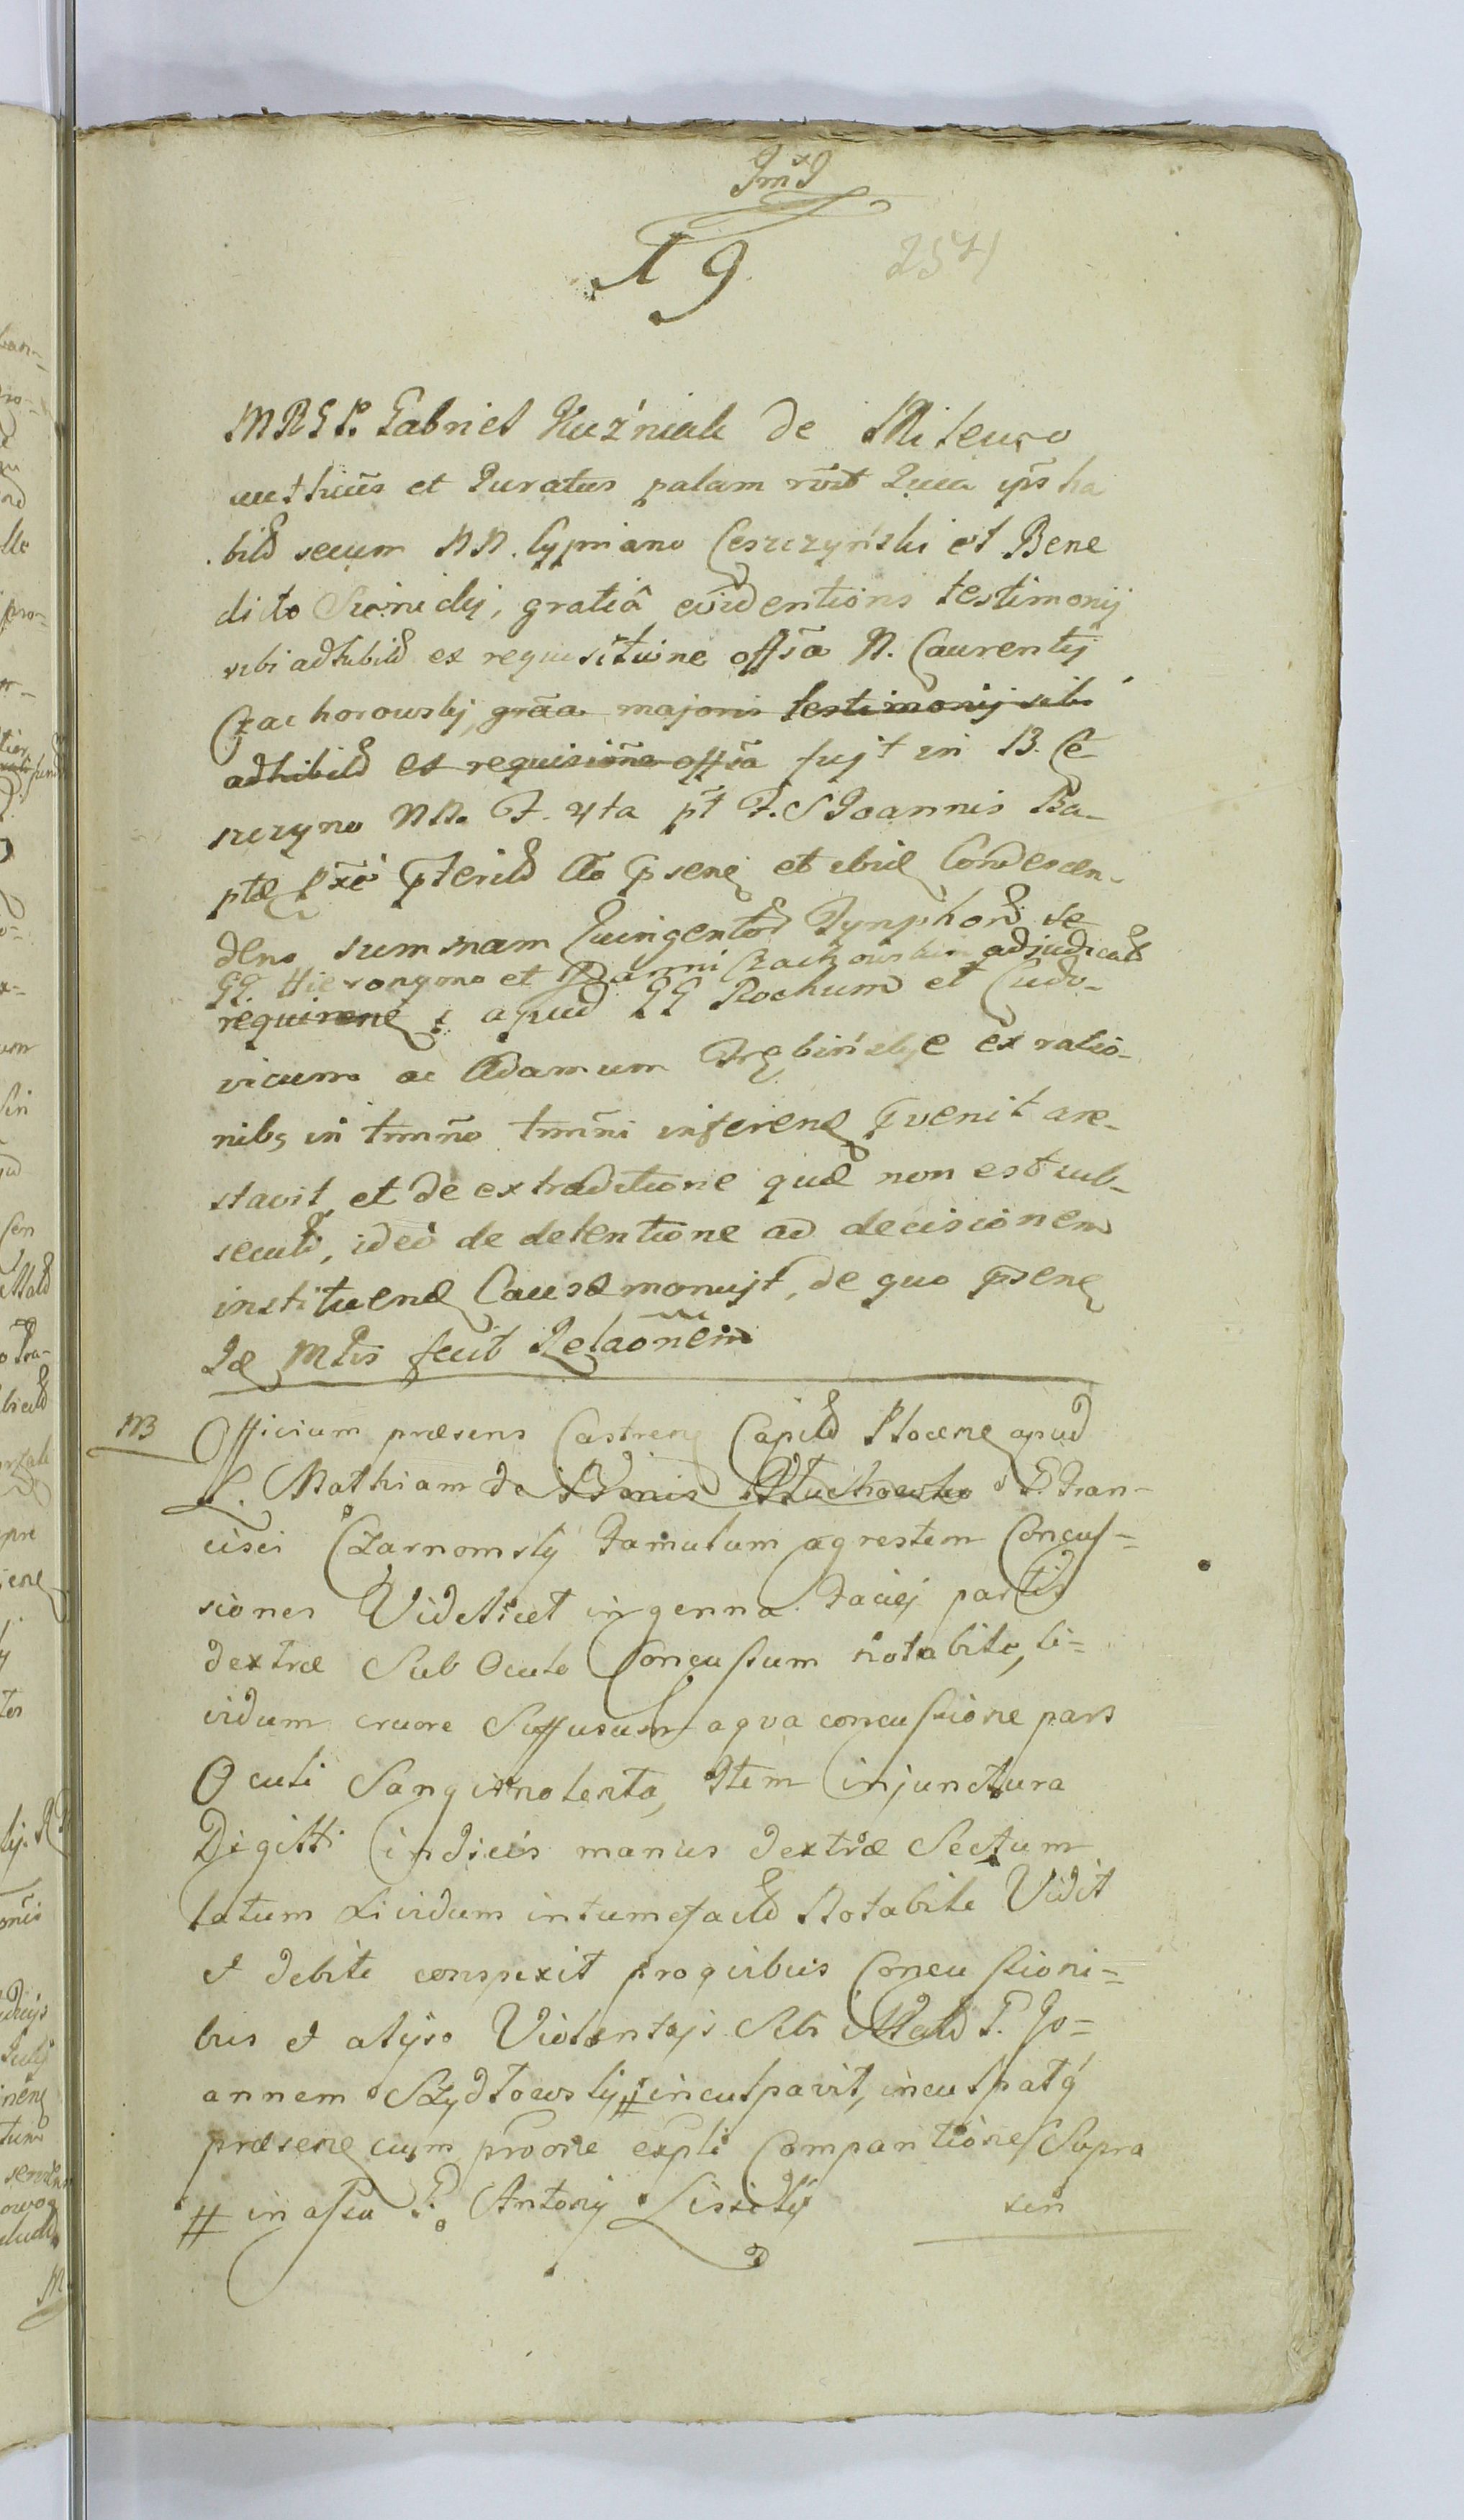 JmJ
19. 257
MRGP. Gabriel Kuźniak de Milewo
authcus et Juratus palam rcvit Quia ipse ha
bitis secum NN. Cypriano Ceszczyński et Bene
dicto Swinicky, gratia evidentioris testimonij
sibi adhibitis ex requisitione offsa N. Laurentij
Czachorowskij, graa majoris testimonij sibi
adhibitis ex requisine offsa fujt in B. Ce-
szczyno NN. F. 4ta pt F. S Joannis Ba-
ptæ pxe pteriti Ao psen et ibid Condescen-
dens summam Quingentor Tynphor se
GG. Hieronymo et Joanni Czachowskim adjudicat
requiren apud GG Rochum et Ludo-
vicum ac Adamum Trębińskie ex ratio-
nibs in tmno tmni inferend pvenit are-
stavit, et de extraditione quæ non est sub-
secuta, ideo de detentione ad decisionem
instituend Causæ monujt, de quo psen
Jæ Mtis fecit Relaonem
NB Officium præsens Castren Capitle Plocen apud
L. Mathiam de Bonis Kluchowsko P. Fran-
cisci Czarnomskij Famulum agrestem Concus-
siones Videlicet in genna Faciej partis
dextræ Sub Oculo Concussum notabile, li-
vidum cruore Suffusum aqva concussione pars
Oculi Sangvinolenta, Item in junctura
Digitti indicis manus dextræ Sectum
latum Lividum intumefactum Notabile Vidit
et debite conspexit proqvibus Concussioni-
bus et alijs Violentijs Sibi illatis P. Jo-
annem Szydłowskij # inculpavit, inculpatq
præsen cum proone expli Comparitione Supra
# in assa P. Antonij Lissickij
sin